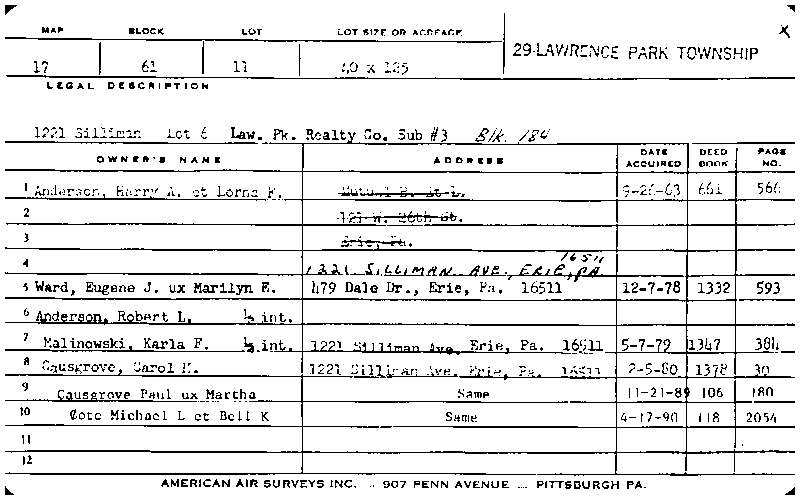 MAP BLOCK LOT LOT SIZE OR ACREAGE
29-LAWRENCE PARK TOWNSHIP X
17 61 11 40 x 125
LEGAL DESCRIPTION
1221 Silliman Lot 6 Law. Pk. Realty Co. Sub #3 Blk. 184
OWNER'S NAME ADDRESS DATE ACQUIRED DEED BOOK PAGE NO.
1 Anderson, Harry A. et Lorna F. Mutual B. et L. 9-26-63 661 566
2 121 W. 26th St.
3 Erie, Pa.
4 1221 SILLIMAN AVE., ERIE, PA 16511
5 Ward, Eugene J. ux Marilyn E. 479 Dale Dr., Erie, Pa. 16511 12-7-78 1332 593
6 Anderson, Robert L. ½ int.
7 Malinowski, Karla F. ½ int. 1221 Silliman Ave. Erie, Pa. 16511 5-7-79 1347 384
8 Causgrove, Carol M. 1221 Silliman Ave. Erie, Pa. 16511 2-5-80 1378 30
9 Causgrove Paul ux Martha Same 11-21-89 106 180
10 Cote Michael L et Bell K Same 4-17-90 118 2054
11
12
AMERICAN AIR SURVEYS INC. .. 907 PENN AVENUE ... PITTSBURGH PA.